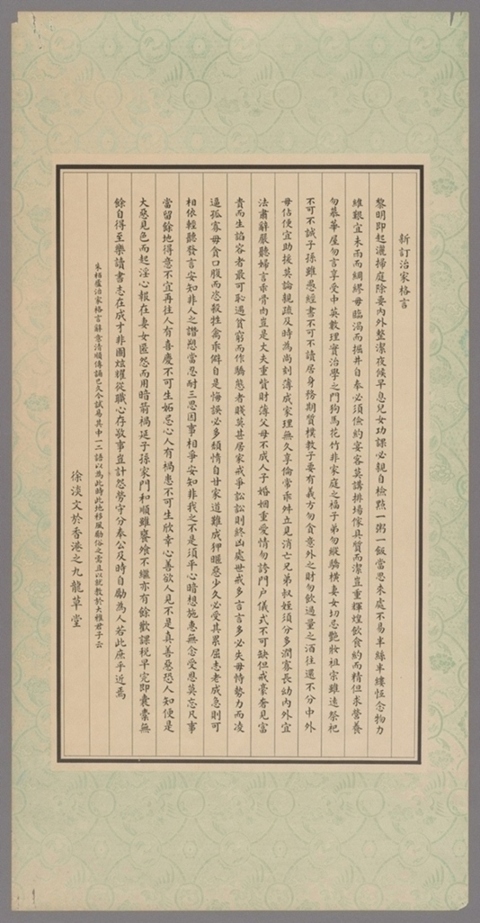 新訂治家格言
黎明即起灑掃庭除要內外整潔夜候早息兒女功課必親自檢點一粥一飯當思來處不易半絲半縷恆念物力
維艱宜未雨而綢繆毋臨渴而掘井自奉必須儉約宴客莫講排場傢具質而潔豈重輝煌飲食約而精但求營養
勿慕華屋勿言享受中英數理實治學之門狗馬花竹非家庭之福子弟勿縱驕橫妻女切忌艷妝祖宗雖遠祭祀
不可不誠子孫雖愚經書不可不讀居身務期質樸教子要有義方勿貪意外之財勿飲過量之酒往還不分中外
毋佔便宜助援莫論親疏及時為尚刻薄成家理無久享倫常乖舛立見消亡兄弟叔姪須分多潤寡長幼內外宜
法肅辭嚴聽婦言乖骨肉豈是丈夫重貲財薄父母不成人子婚姻重愛情勿誇門戶儀式不可缺但戒豪奢見富
貴而生諂容者最可恥遇貧窮而作驕態者賤莫甚居家戒爭訟訟則終凶處世戒多言言多必失毋恃勢力而凌
逼孤寡毋貪口腹而恣殺牲禽乖僻自是悔誤必多頹惰自甘家道難成狎暱惡少久必受其累屈志老成急則可
相依輕聽發言安知非人之譖愬當忍耐三思因事相爭安知非我之不是須平心暗想施惠無念受恩莫忘凡事
當留餘地得意不宜再往人有喜慶不可生妬忌心人有禍患不可生欣幸心善欲人見不是真善惡恐人知便是
大惡見色而起淫心報在妻女匿怨而用暗箭禍延子孫家門和順雖饔飧不繼亦有餘歡課稅早完即囊橐無
餘自得至樂讀書志在成才非圖炫耀從職心存敬事豈計怨勞守分奉公及時自勵為人若此庶乎近焉
朱柏廬治家格言辭意清順傳誦已久今試易其中一二語以為此時此地移風勵俗之需並以就教於大雅君子云
徐淡文於香港之九龍草堂